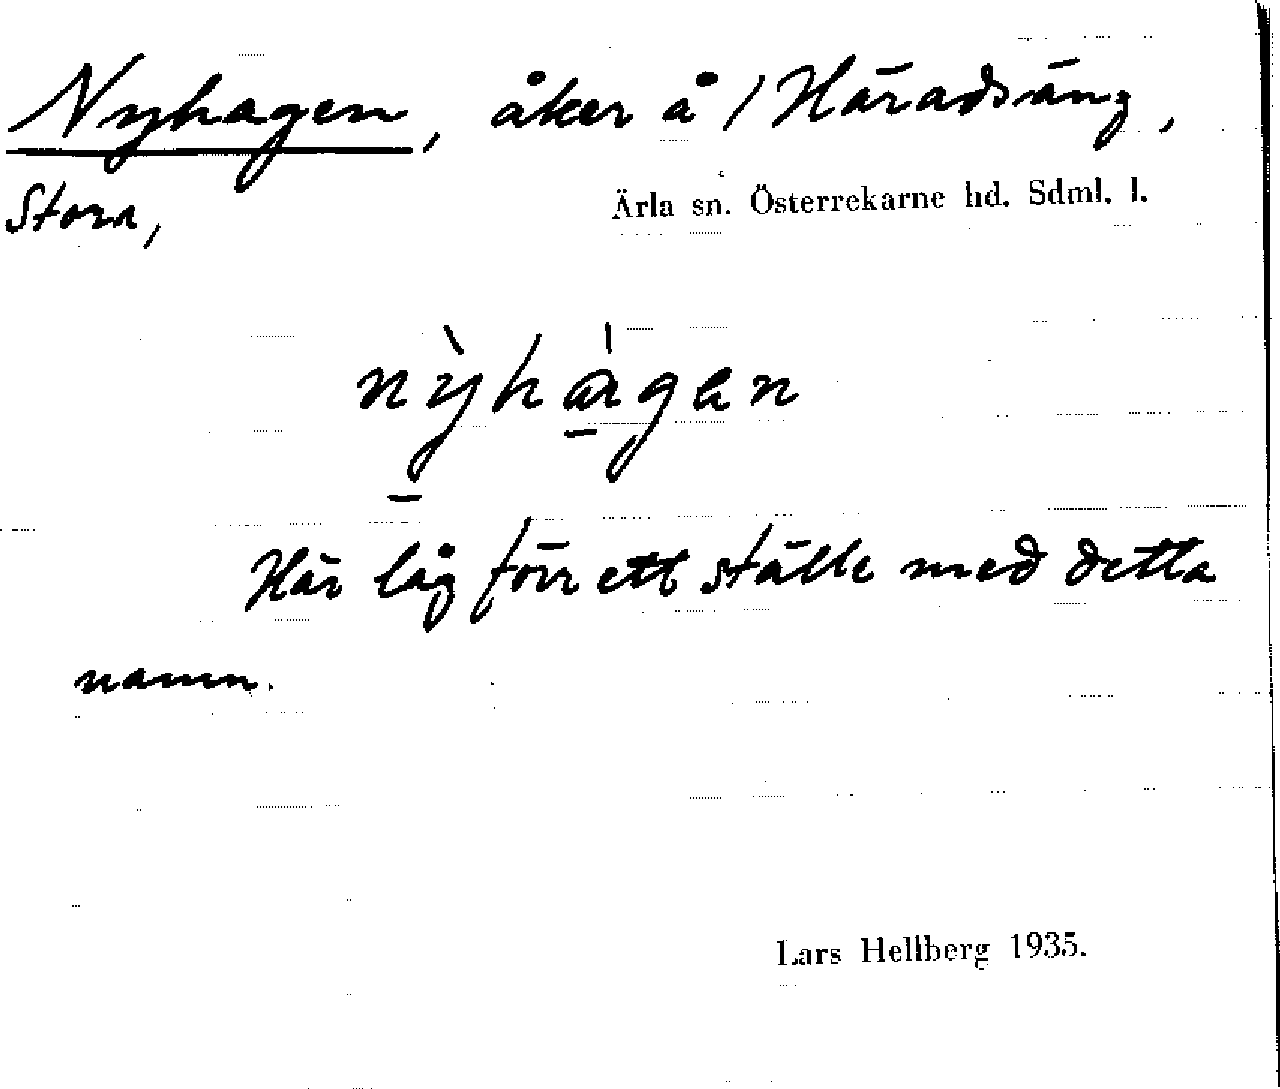 Nyhagen, åker å / Häradsäng,
Stora,
Ärla sn. Österrekarne hd. Sdml. l.
nỳhàgen
Här låg förr ett ställe med detta
namn.
Lars Hellberg 1935.